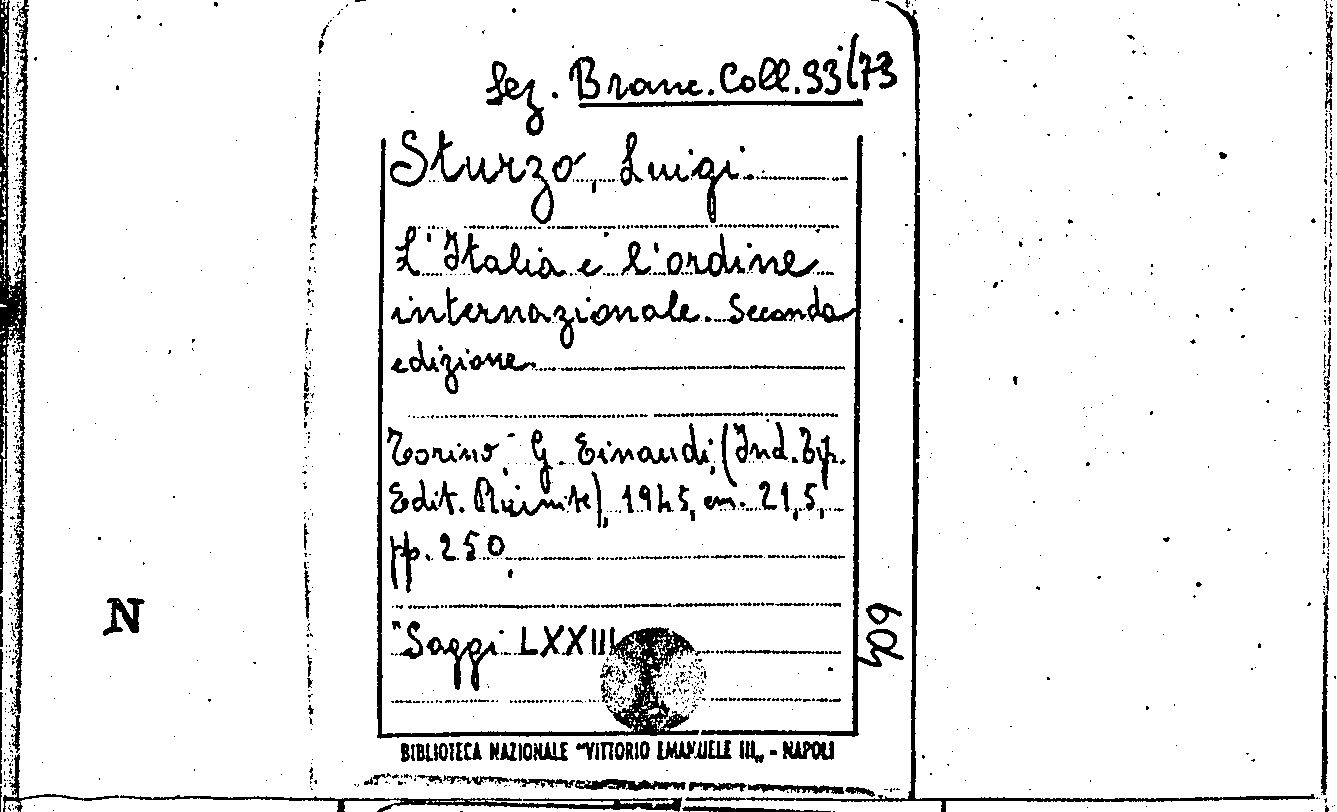 Sez. Branc. Coll. 93(73
Sturzo, Luigi.
L'Italia e l'ordine
internazionale. Seconda
edizione.
Torino, G. Einaudi, (Ind. Tip.
Edit. Riunite), 1945, cm. 21,5,
pp. 250.
"Saggi LXXIII
604
N
BIBLIOTECA NAZIONALE "VITTORIO EMANUELE III„ - NAPOLI